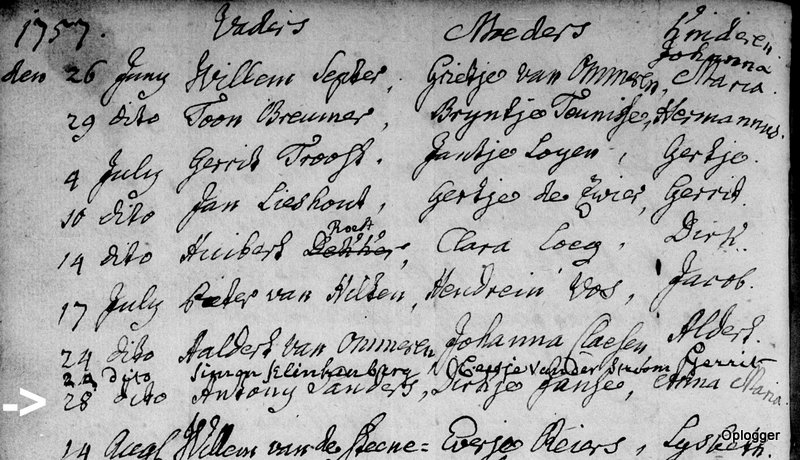 1757. Vaders Moeders Kinderen
Johanna
den 26 Juny Willem Septer, Grietje van Ommeren, Maria.
29 dito Toon Breumer, Bryntje Teunisse, Hermannus.
4 July Gerrit Troost. Jantje Loyen, Gertje.
10 dito Jan Lieshout, Gertje de Zwier, Gerrit.
Roest
14 dito Huibert Dekker, Clara Loeg, Dirk.
17 July Peter van Hilten, Hendrein Vos, Jacob.
24 dito Aaldert van Ommeren, Johanna Claesen, Aldert.
dito Simon Klinkenburg, van der Stroom Gerrit
-> 28 dito Antony Sanders, Dirkje Janse, Anna Maria.
14 Augt Willem van de Steene = Everje Reiers, Lysbeth.
Oplogger